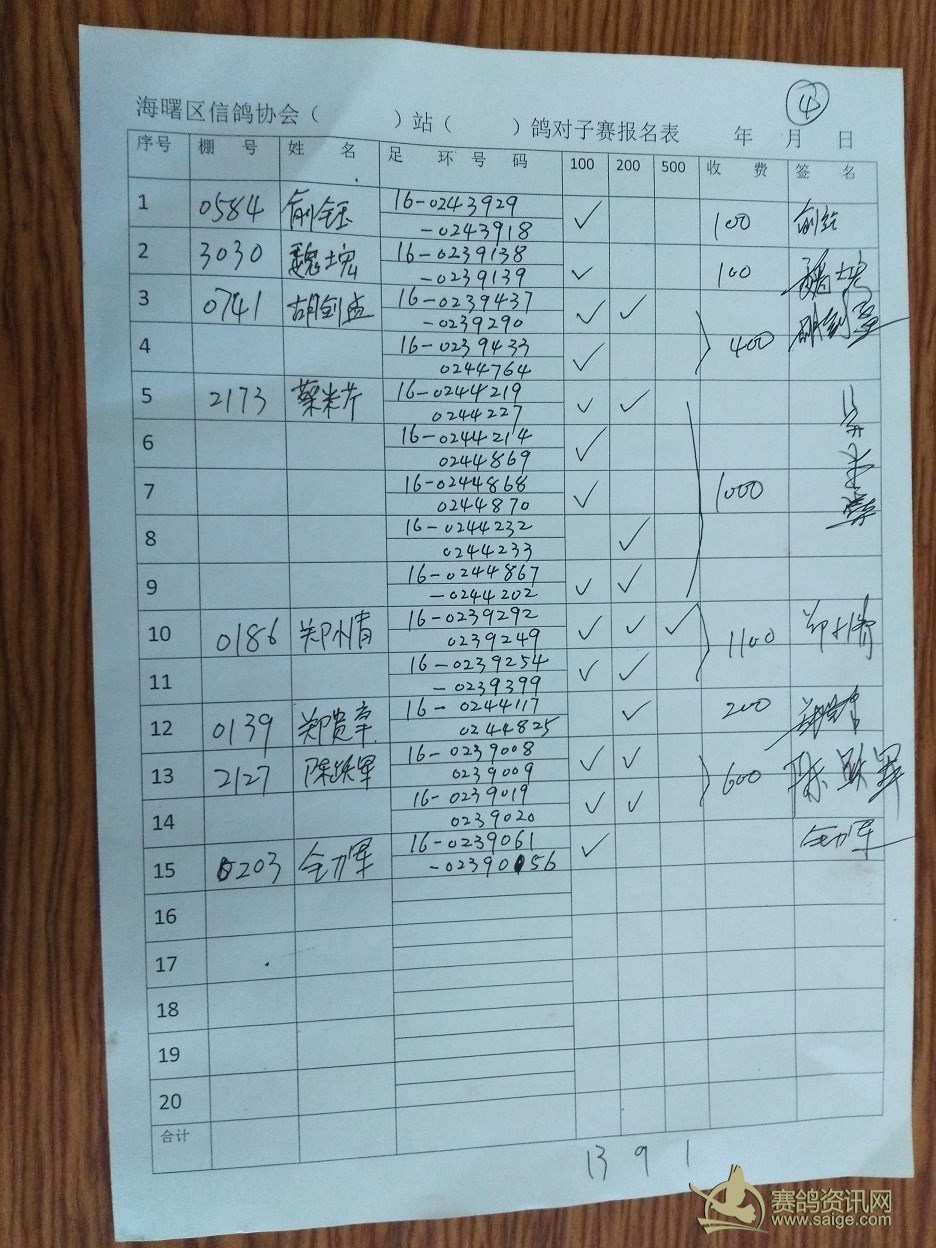 ④
海曙区信鸽协会（ ）站（ ）鸽对子赛报名表 年 月 日
序号 棚 号 姓 名 足 环 号 码 100 200 500 收 费 签 名
1 0584 俞钰 16-0243929 ✓ 100
-0243918
2 3030 16-0239138 ✓ 100
-0239139
3 0741 胡剑益 16-0239437 ✓ ✓ 400
-0239290
4 16-0239433 ✓
0244764
5 2173 蔡米芹 16-0244219 ✓ ✓ 1000
0244227
6 16-0244214 ✓
0244869
7 16-0244868 ✓
0244870
8 16-0244232 ✓
0244233
9 16-0244867 ✓ ✓
-0244202
10 0186 16-0239292 ✓ ✓ ✓ 1100
0239249
11 16-0239254 ✓ ✓
-0239399
12 0139 郑贵章 16-0244117 ✓ 200
0244825
13 2127 陈跃军 16-0239008 ✓ ✓ 600 陈跃军
0239009
14 16-0239019 ✓ ✓
0239020
15 0203 全力军 16-0239061 ✓ 全力军
-0239056
16
17
18
19
20
合计
13 9 1
赛鸽资讯网
www.saige.com